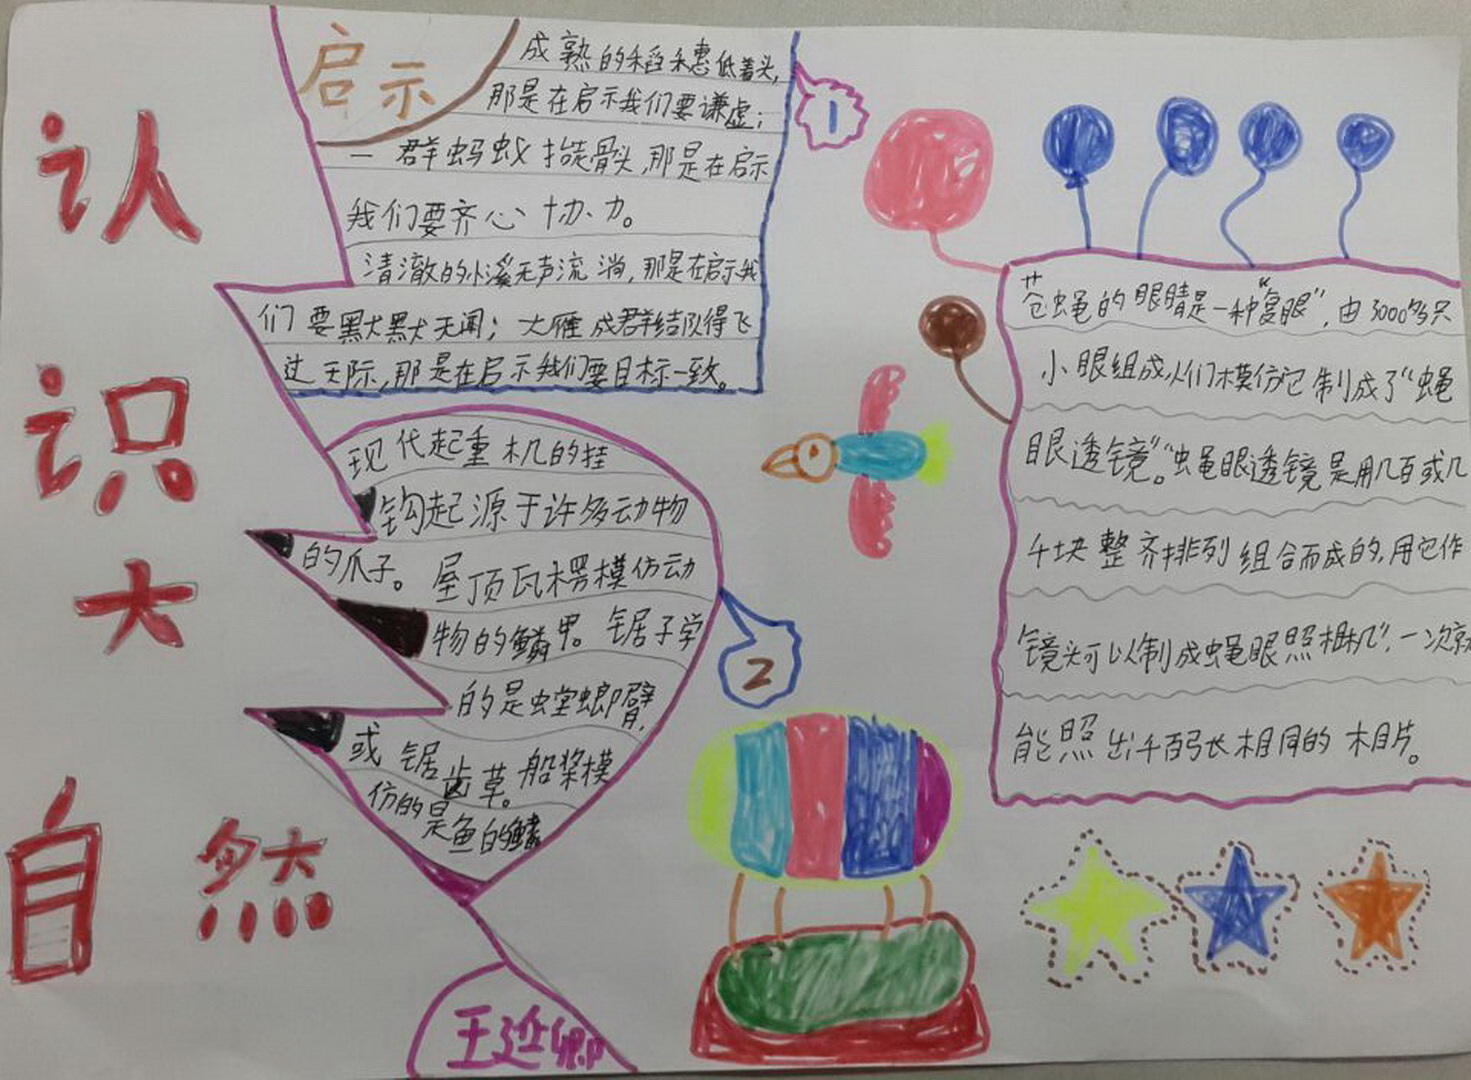 认
识
大
自然
启示
成熟的稻穗低着头,
那是在启示我们要谦虚;
一群蚂蚁搓骨头,那是在启示
我们要齐心协力。
清澈的小溪无声流淌,那是在启示我
们要默默无闻;大雁成群结队得飞
过天际,那是在启示我们要目标一致。
1
现代起重机的挂
钩起源于许多动物
的爪子。屋顶瓦楞模仿动
物的鳞甲。锯子学
的是螳螂臂,
或锯齿草。船桨模
仿的是鱼的鳍
2
苍蝇的眼睛是一种“复眼”,由3000多只
小眼组成,人们模仿它制成了“蝇
眼透镜”。“虫蝇眼透镜是用几百或几
千块整齐排列组合而成的,用它作
镜头可以制成蝇眼照相机”,一次就
能照出千百张相同的相片。
王